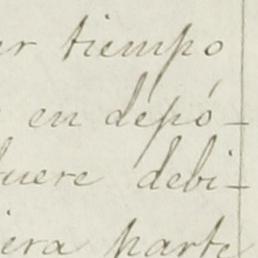 er tiempo
en depó-
fuere debi-
iera parte